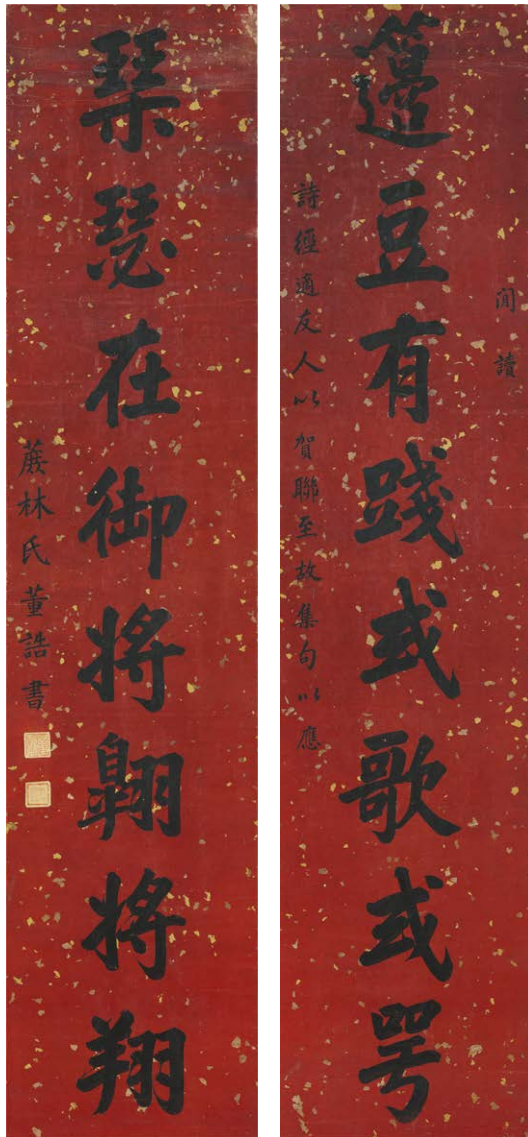 閒讀
籩豆有踐或歌或咢
詩經適友人以賀聯至故集句以應
琴瑟在御將翺將翔
蔗林氏董誥書